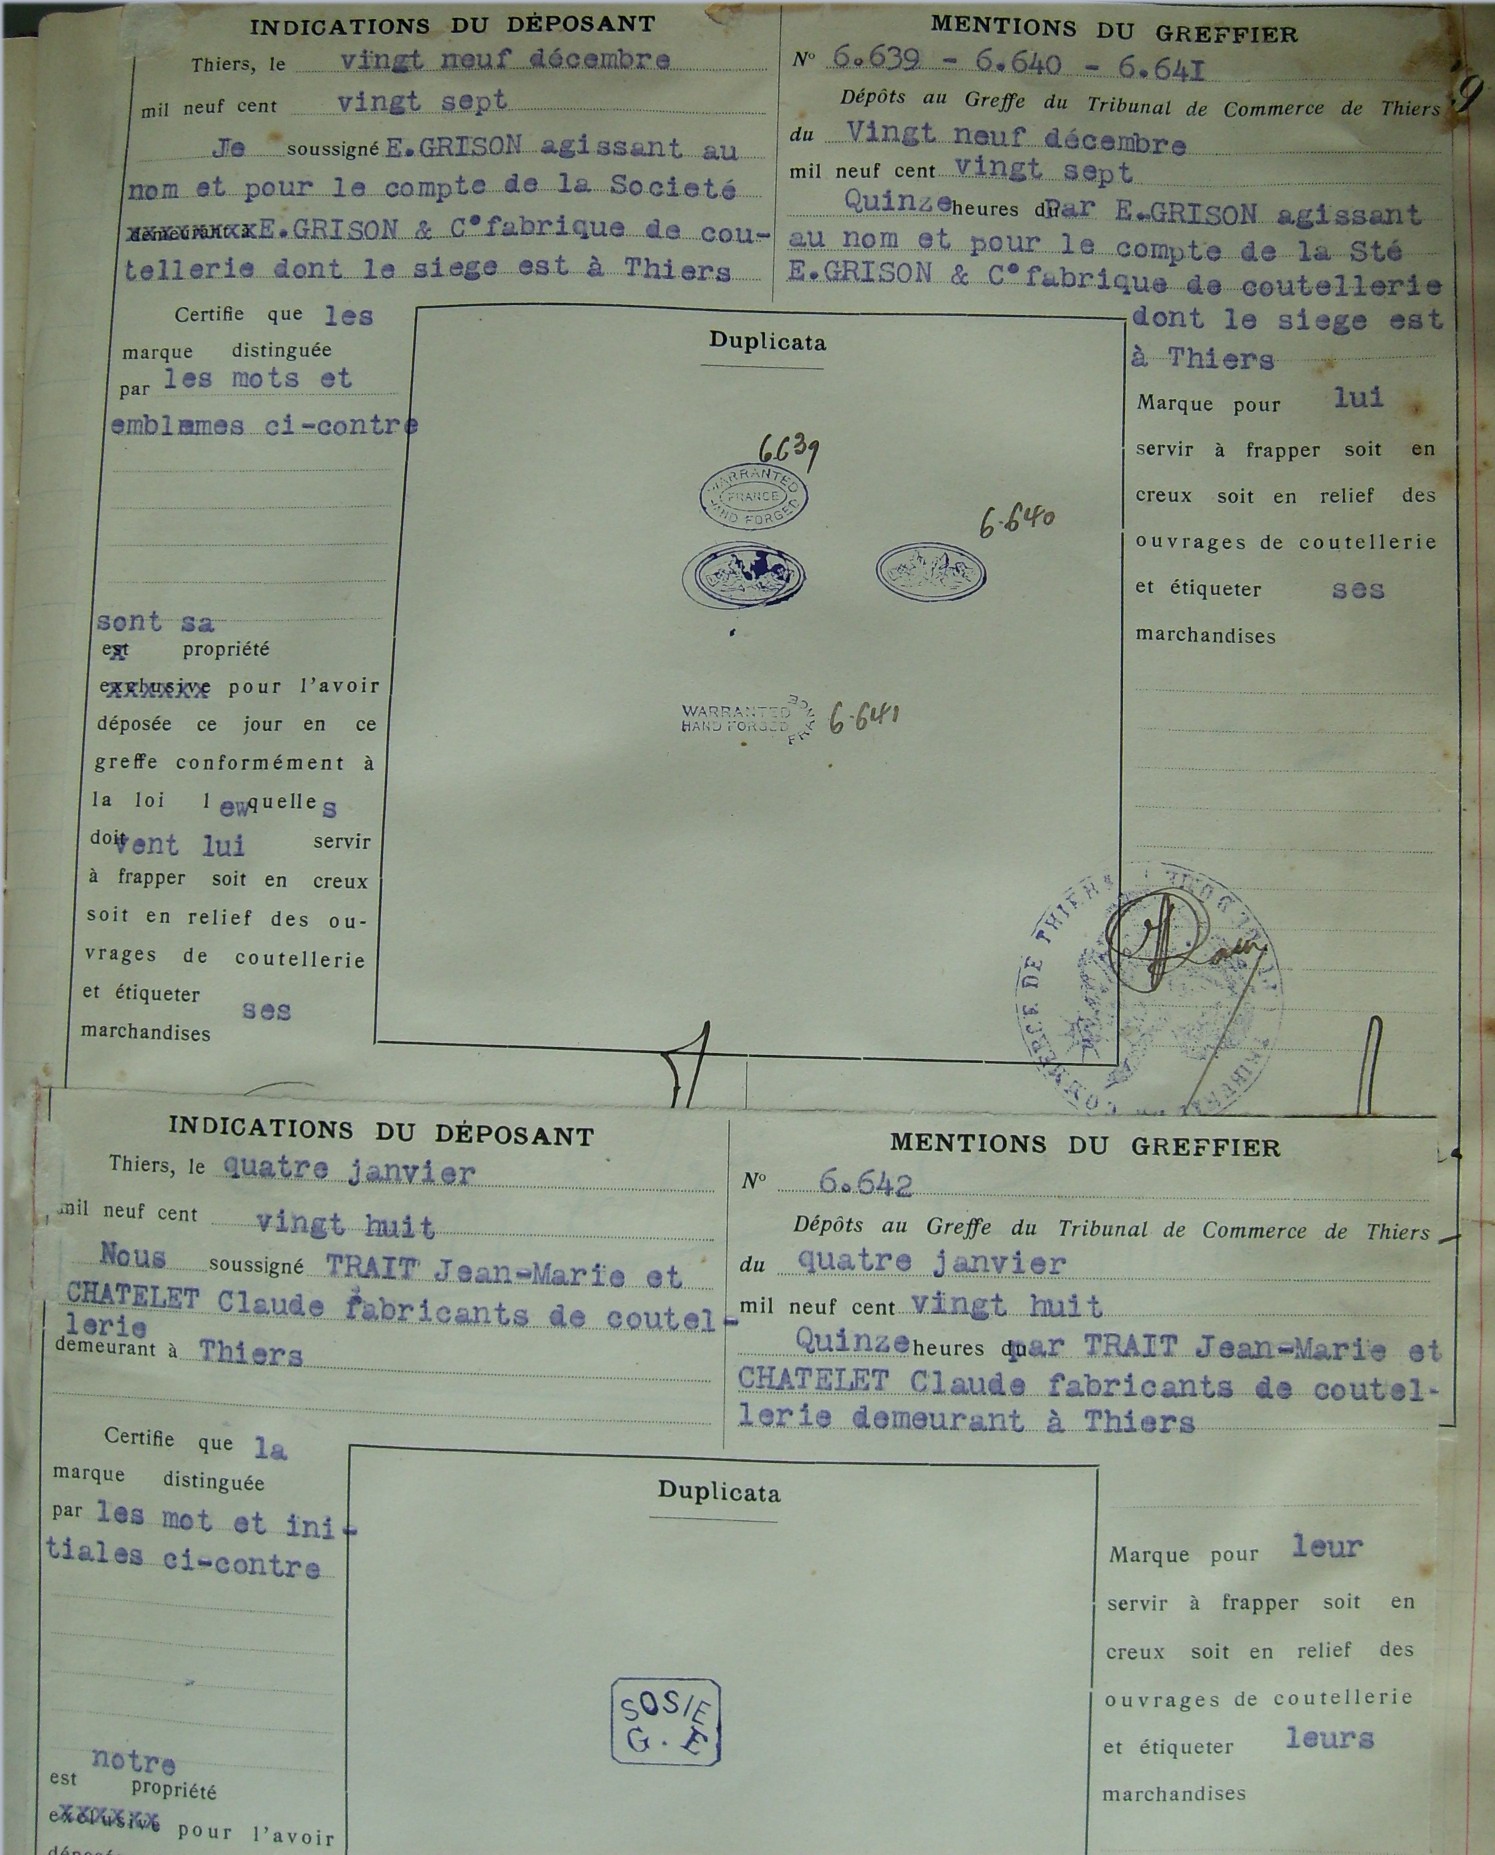 INDICATIONS DU DÉPOSANT
Thiers, le vingt neuf décembre
mil neuf cent vingt sept
Je soussigné E.GRISON agissant au
nom et pour le compte de la Societé
E.GRISON & C° fabrique de cou-
tellerie dont le siege est à Thiers
Certifie que les
marque distinguée
par les mots et
emblemes ci-contre
sont sa
est propriété
exclusive pour l'avoir
déposée ce jour en ce
greffe conformément à
la loi lewquelles
doitvent lui servir
à frapper soit en creux
soit en relief des ou-
vrages de coutellerie
et étiqueter ses
marchandises
MENTIONS DU GREFFIER
No 6.639 - 6.640 - 6.641
9
Dépôts au Greffe du Tribunal de Commerce de Thiers
du Vingt neuf décembre
mil neuf cent vingt sept
Quinze heures du Par E.GRISON agissant
au nom et pour le compte de la Sté
E.GRISON & C° fabrique de coutellerie
dont le siege est
à Thiers
Marque pour lui
servir à frapper soit en
creux soit en relief des
ouvrages de coutellerie
et étiqueter ses
marchandises
Duplicata
6639
WARRANTED
FRANCE
HAND FORGED
6.640
WARRANTED
HAND FORGED
FRANCE
6.641
COMMERCE DE THIERS
INDICATIONS DU DÉPOSANT
Thiers, le quatre janvier
mil neuf cent vingt huit
Nous soussigné TRAIT Jean-Marie et
CHATELET Claude fabricants de coutel-
lerie
demeurant à Thiers
Certifie que la
marque distinguée
par les mot et ini-
tiales ci-contre
notre
est propriété
exclusive pour l'avoir
MENTIONS DU GREFFIER
No 6.642
Dépôts au Greffe du Tribunal de Commerce de Thiers
du quatre janvier
mil neuf cent vingt huit
Quinze heures du par TRAIT Jean-Marie et
CHATELET Claude fabricants de coutel-
lerie demeurant à Thiers
Marque pour leur
servir à frapper soit en
creux soit en relief des
ouvrages de coutellerie
et étiqueter leurs
marchandises
Duplicata
SOSIE
G. E